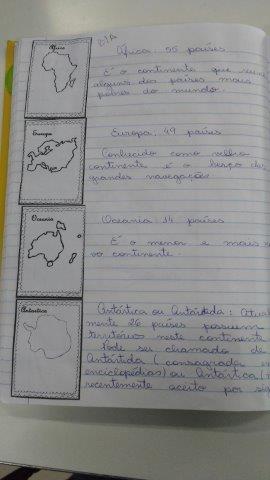 África
África: 55 países
É o continente que reune
alguns dos países mais
pobres do mundo.
Europa
Europa: 49 países
Conhecido como velho
continente e o berço das
grandes navegações
Oceania
Oceania: 14 países
É o menor e mais no
vo continente.
Antártica
Antártica ou Antártida: Atual
mente 26 países possuem
territórios neste continente
Pode ser chamado de
Antártida (consagrada em
enciclopédias) ou Antártica (
recentemente aceito por